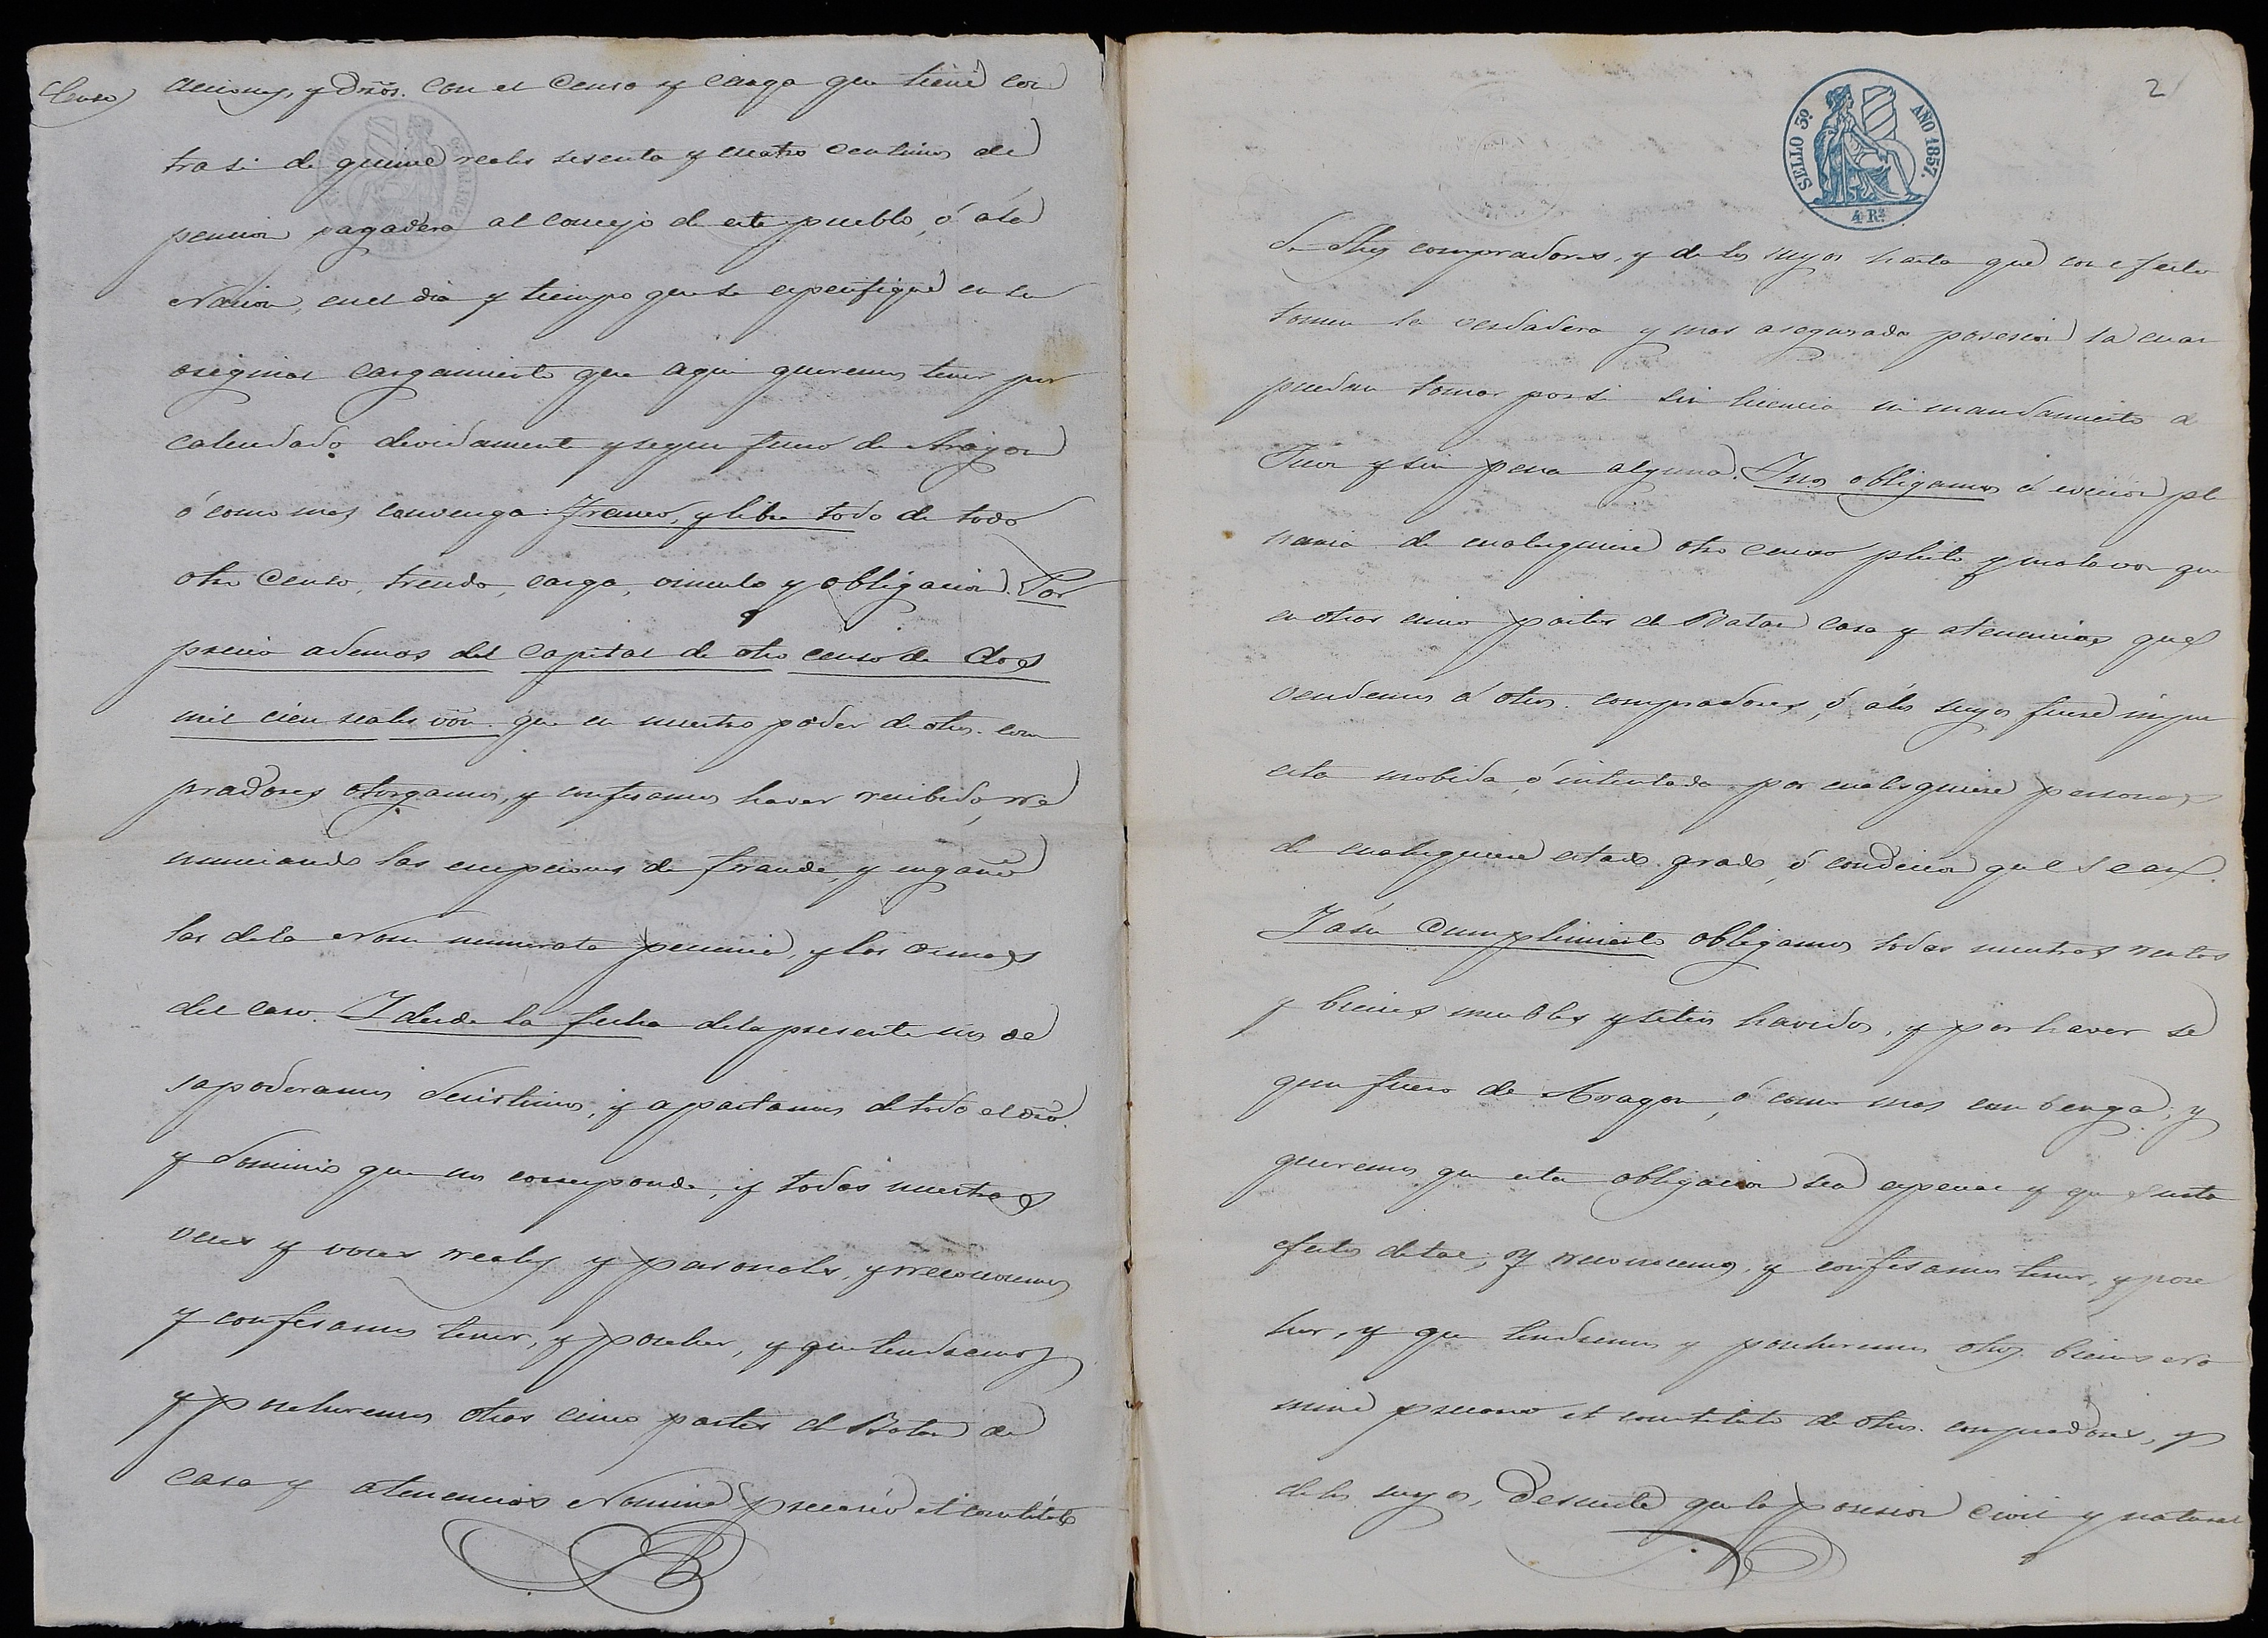 Censo
acciones, y dr̃os. con el Censo y carga que tiene con
tra si de quince reales sesenta y cuatro centimos de
pencion pagadera al concejo de este pueblo, ó ála
Nacion, en el dia y tiempo que se expecifique en su
original cargamiento que aqui queremos tener por
calendado devidamente y segun fuero de Aragon
ó como mas convenga: Franco, y libre todo de todo
otro Censo, treudo, carga, vinculo y obligacion. Por
precio ademas del Capital de dho censo de dos
mil cien reales von. que en nuestro poder de dhos. com
pradores otorgamos, y confesamos haver recibido, re
nunciando las excepciones de fraude, y engaño
las dela Non numerata pecunia, y las demas
del caso. Y desde la fecha dela presente nos de
sapoderamos desistimos, y apartamos de todo el dr̃o.
y dominio que nos corresponde, y todas nuestras
veces y voces reales y pasonales, y reconocemos
y confesamos tener, y poseher, y que tendremos
y poseheremos dhas cinco partes de Batan de
casa y atenencias Nomine precario et constituto
2
SELLO 3º AÑO 1857.
4 Rs.
de dhos compradores, y de los suyos hasta que con efecto
tomen la verdadera y mas asegurada posesion la cual
puedan tomar por si sin licencia ni mandamiento de
Juez y sin pena alguna. Y nos obligamos á eviccion ple
naria de cualesquiere otro censo pleito y mala voz que
en dhas cinco partes de Batan casa y atenencias que
vendemos á dhos. compradores, ó álos suyos fuere impu
esta mobida, ó intentada por cualesquiere personas
de cualesquiere estado grado, ó condicion que sean.
Y á su Cumplimiento obligamos todas nuestras rentas
y bienes muebles y sitios havidos, y por haver se
gun fuero de Aragon, ó como mas conbenga; y
queremos que esta obligacion sea expecial y que surta
efectos de tal; y reconocemos, y confesamos tener, y pose
her, y que tendremos y poseheremos dhos. bienes No
mine precario et constituto de dhos. compradores, y
de los suyos, de suerte que la posesion civil y natural